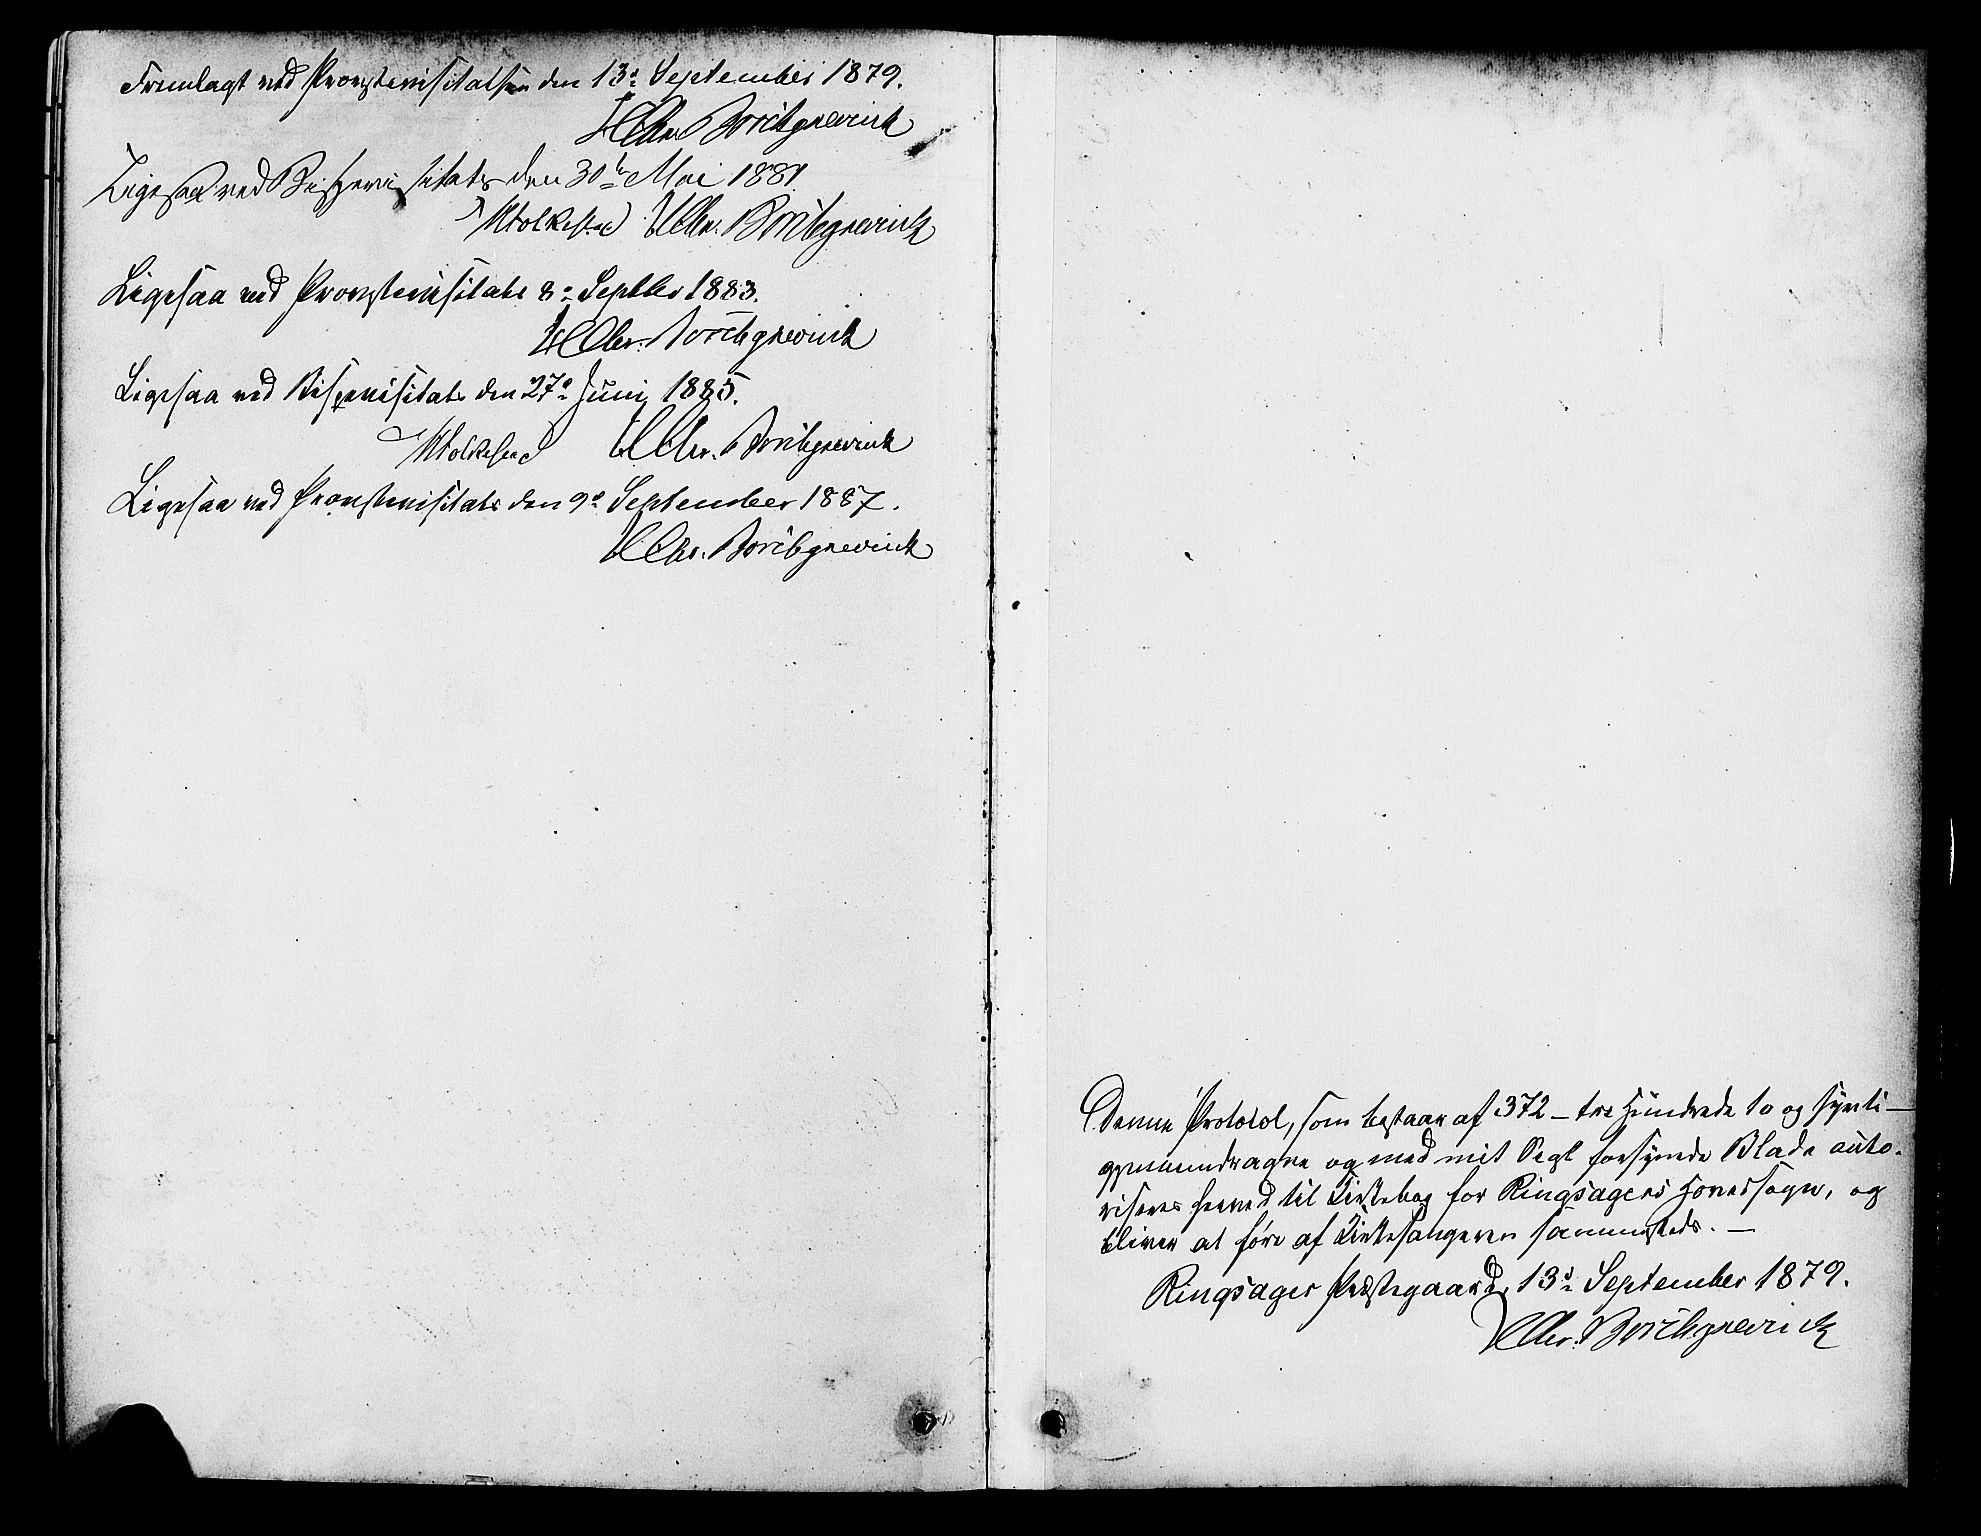 Fremlagt ved Provstevisitatsen den 13de September 1879.
H Chr. Borchgrevink
Ligesaa ved Bispevisitats den 30te Mai 1881
H Chr. Borchgrevink
Ligesaa ved Provstevisitats 8de Septbr 1883.
H Chr. Borchgrevink
Ligesaa ved Bispevisitats den 27de Juni 1885.
H Chr. Borchgrevink
Ligesaa ved Provstevisitats den 9de September 1887.
H Chr. Borchgrevink
Denne Protocol, som bestaar af 372 – tre Hundrede to og syvti –
gjennemdragne og med mit Segl forsynede Blade auto-
riseres herved til Kirkebog for Ringsagers Hovedsogn, og
bliver at føre af Kirkesangeren sammesteds. –
Ringsager Præstegaard, 13de September 1879.
H Chr. Borchgrevink